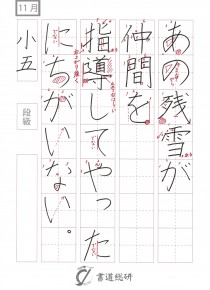 11月
あの残雪が
仲間を
指導してやった
にちがいない。
小五
段級
書道総研